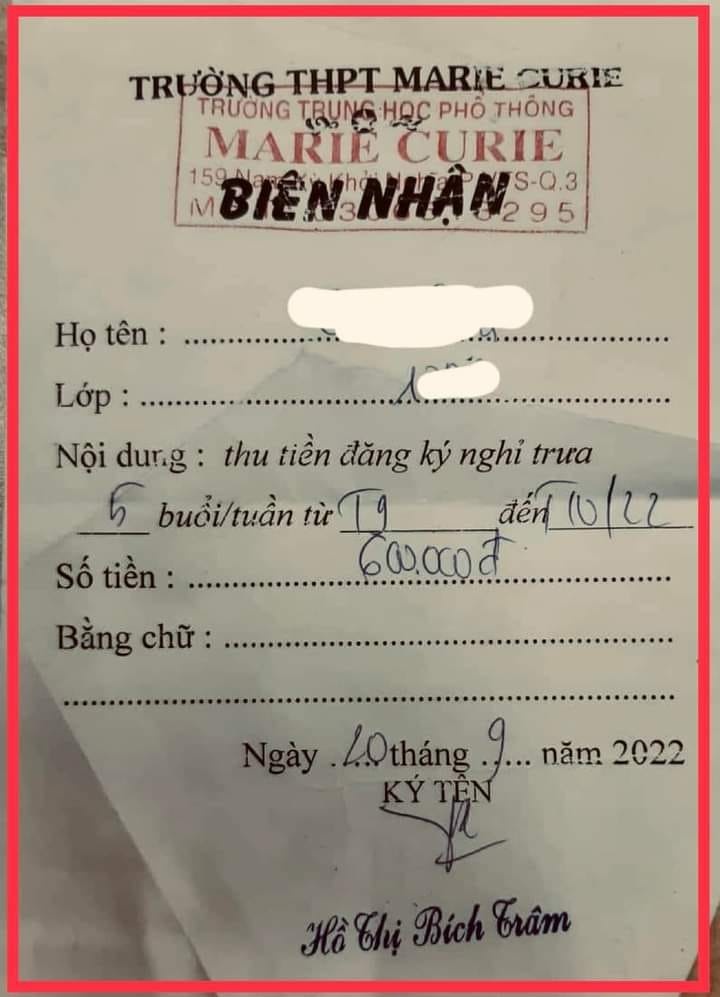 TRƯỜNG THPT MARIE CURIE
TRƯỜNG TRUNG HỌC PHỔ THÔNG
MARIE CURIE
159 Nam Kỳ Khởi Nghĩa S-Q.3
BIÊN NHẬN
Họ tên :
Lớp : 1
Nội dung : thu tiền đăng ký nghỉ trưa
5 buổi/tuần từ T9 đến T10/22
Số tiền : 600.000đ
Bằng chữ :
Ngày 20 tháng 9 năm 2022
KÝ TÊN
Hồ Thị Bích Trâm